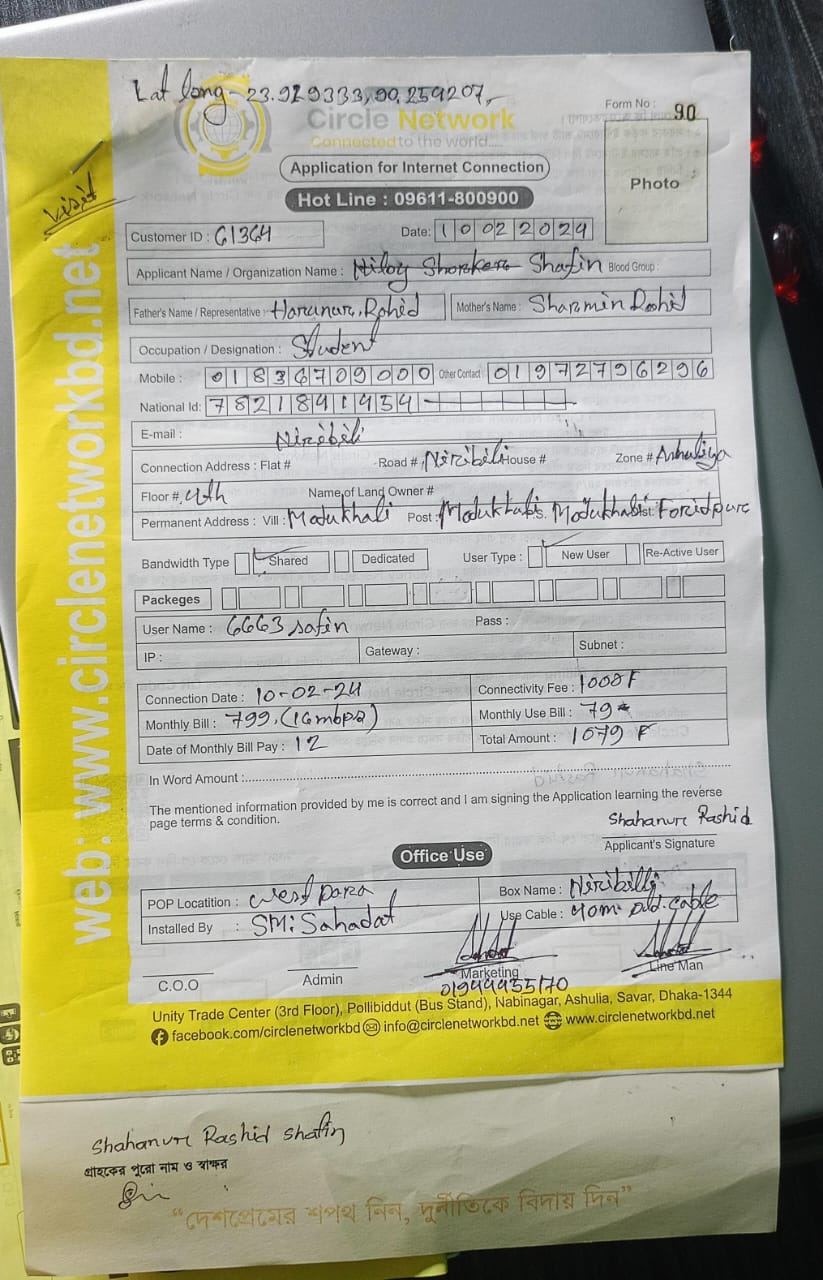 Lat long - 23.929333, 90.259207,
Form No : 90
Circle Network
Connected to the world....
Photo
Application for Internet Connection
Hot Line : 09611-800900
visit
web: www.circlenetworkbd.net
Customer ID : 61364 Date: 10022024
Applicant Name / Organization Name : Shafin Blood Group :
Father's Name / Representative : Harunur, Rohid Mother's Name : Sharmin Rohid
Occupation / Designation : Student
Mobile : 01836709000 Other Contact : 01972796296
National Id: 7821841454
E-mail :
Niribili
Connection Address : Flat # Road # Niribili House # Zone # Ashuliya
Floor #, 4th Name of Land Owner #
Permanent Address : Vill : Modukhali Post : Modukhali P.S. Modukhali Dist: Foridpure
Bandwidth Type Shared Dedicated User Type : New User Re-Active User
Packeges
User Name : 6663 safin Pass :
IP : Gateway : Subnet :
Connection Date : 10-02-24 Connectivity Fee : 1000F
Monthly Bill : 799, (16mbps) Monthly Use Bill : 79
Date of Monthly Bill Pay : 12 Total Amount : 1079 F
In Word Amount :
The mentioned information provided by me is correct and I am signing the Application learning the reverse
page terms & condition.
Shahanur Rashid
Applicant's Signature
Office Use
POP Locatition : west para Box Name : Niribilly
Installed By : SM: Sahadat Use Cable : 40m. Old. Cable
C.O.O Admin Marketing Line Man
Unity Trade Center (3rd Floor), Pollibiddut (Bus Stand), Nabinagar, Ashulia, Savar, Dhaka-1344
facebook.com/circlenetworkbd info@circlenetworkbd.net www.circlenetworkbd.net
Shahanur Rashid Shafin
গ্রাহকের পুরো নাম ও স্বাক্ষর
“দেশপ্রেমের শপথ নিন, দুর্নীতিকে বিদায় দিন”